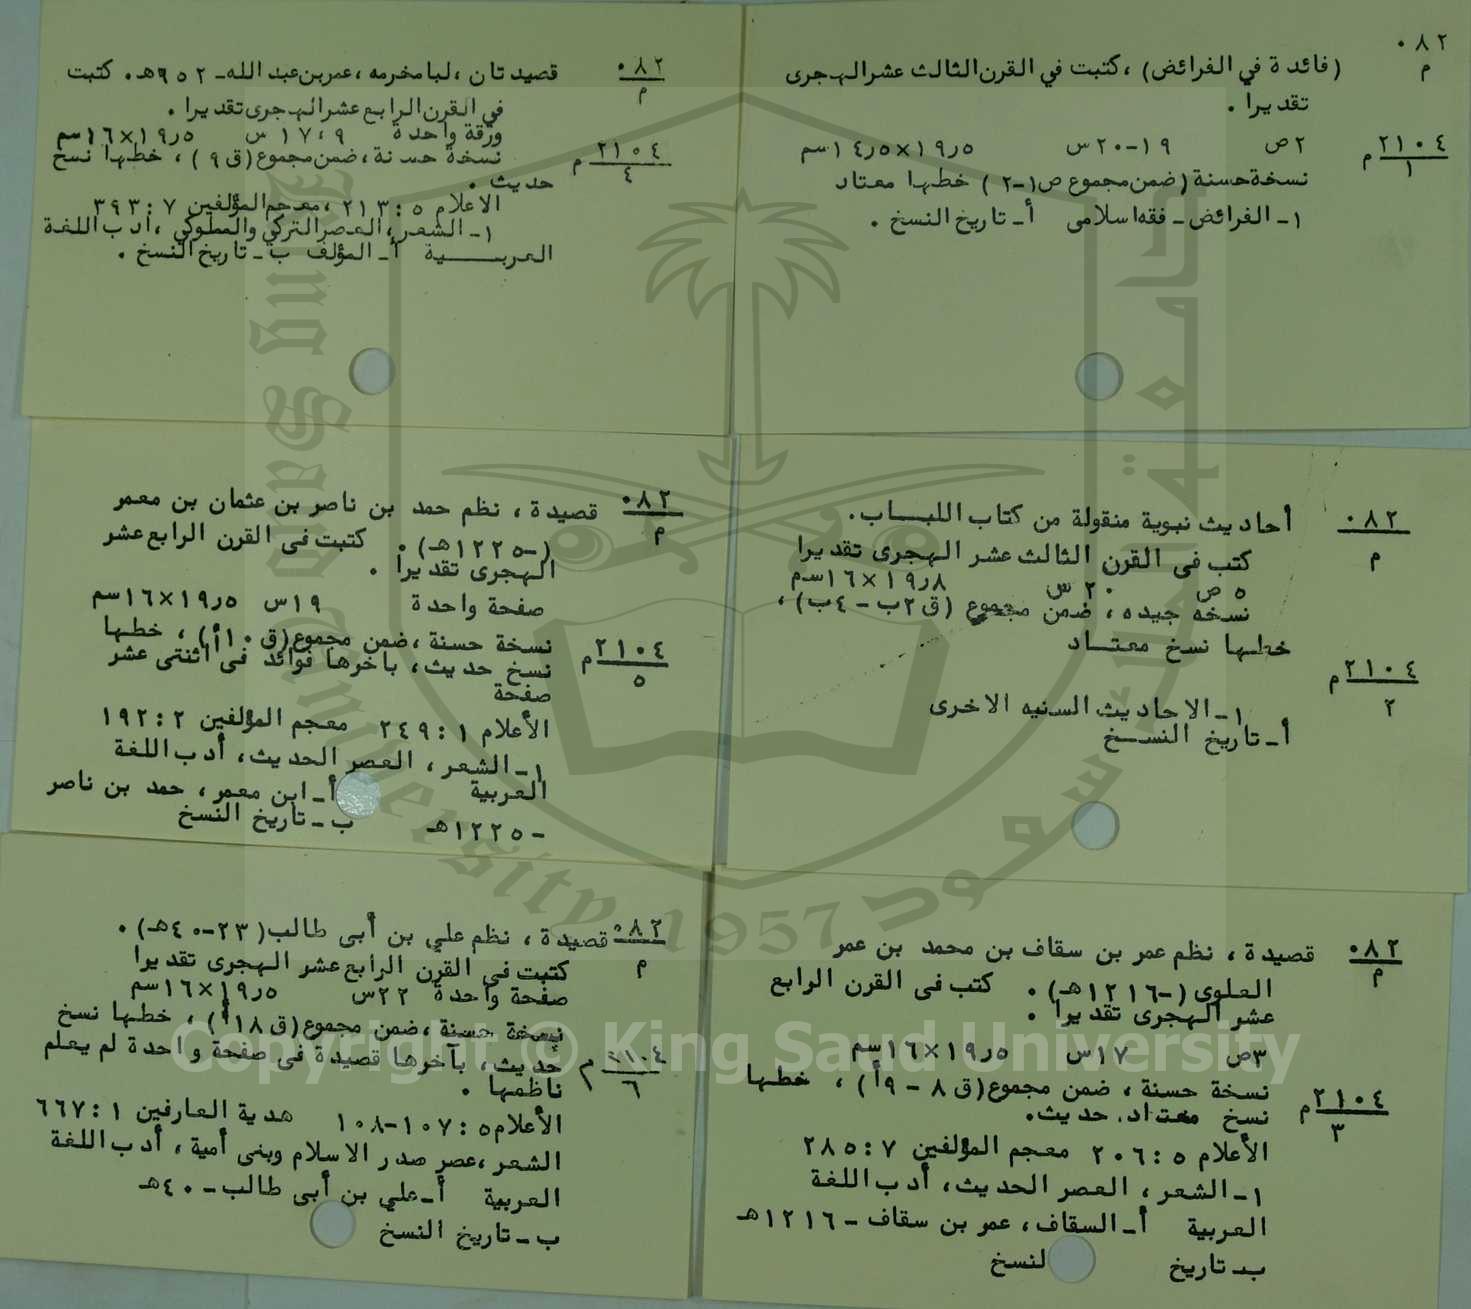 ٠٨٢
م
(فائدة في الفرائض) ، كتبت في القرن الثالث عشر الهجرى
تقديرا .
٢ص ١٩-٢٠س ١٩٫٥×١٤٫٥سم
٢١٠٤ م
١
نسخة حسنة (ضمن مجموع ص١-٢) خطها معتاد
١- الفرائض - فقه اسلامى أ- تاريخ النسخ .
٠٨٢
م
قصيدتان ، لبا مخرمه ، عمر بن عبد الله - ٩٥٢هـ . كتبت
في القرن الرابع عشر الهجرى تقديرا .
ورقة واحدة ١٧،٩ س ١٩٫٥×١٦سم
٢١٠٤ م
٤
نسخة حسنة ، ضمن مجموع (ق٩) ، خطها نسخ
حديث .
الاعلام ٥ : ٢١٣ ، معجم المؤلفين ٧ : ٣٩٣
١- الشعر ، العصر التركي والمملوكي ، أدب اللغة
العربيـــة أ- المؤلف ب- تاريخ النسخ .
٠٨٢
م
أحاديث نبوية منقولة من كتاب اللبــاب .
كتب فى القرن الثالث عشر الهجرى تقديرا
٥ ص ٢٠ س ١٩٫٨×١٦سم
نسخه جيده ، ضمن مجموع (ق٢ب - ٤ب) ،
خطها نسخ معتــاد
٢١٠٤ م
٢
١- الاحاديث السنيه الاخرى
أ- تاريخ النســخ
٠٨٢
م
قصيدة ، نظم حمد بن ناصر بن عثمان بن معمر
(-١٢٢٥هـ) . كتبت فى القرن الرابع عشر
الهجرى تقديرا .
صفحة واحدة ١٩س ١٩٫٥×١٦سم
٢١٠٤ م
٥
نسخة حسنة ، ضمن مجموع (ق١٠أ) ، خطها
نسخ حديث ، باخرها فوائد فى اثنتى عشر
صفحة
الأعلام ١ : ٢٤٩ معجم المؤلفين ٢ : ١٩٢
١- الشعر ، العصر الحديث ، أدب اللغة
العربية أ- ابن معمر ، حمد بن ناصر
-١٢٢٥هـ ب- تاريخ النسخ
٠٨٢
م
قصيدة ، نظم عمر بن سقاف بن محمد بن عمر
العلوى (-١٢١٦هـ) . كتب فى القرن الرابع
عشر الهجرى تقديرا .
٣ص ١٧س ١٩٫٥×١٦سم
٢١٠٤ م
٣
نسخة حسنة ، ضمن مجموع (ق٨ - ٩أ) ، خطها
نسخ معتاد . حديث .
الأعلام ٥ : ٢٠٦ معجم المؤلفين ٧ : ٢٨٥
١- الشعر ، العصر الحديث ، أدب اللغة
العربية أ- السقاف ، عمر بن سقاف - ١٢١٦هـ
ب- تاريخ لنسخ
٠٨٢
م
قصيدة ، نظم علي بن أبى طالب (٢٣-٤٠هـ) .
كتبت فى القرن الرابع عشر الهجرى تقديرا
صفحة واحدة ٢٢س ١٩٫٥×١٦سم
نسخة حسنة ، ضمن مجموع (ق١٨أ) ، خطها نسخ
٢١٠٤ م
٦
حديث ، بآخرها قصيدة فى صفحة واحدة لم يعلم
ناظمها .
الأعلام ٥ : ١٠٧-١٠٨ هدية العارفين ١ : ٦٦٧
الشعر ، عصر صدر الاسلام وبنى أمية ، أدب اللغة
العربية أ- علي بن أبى طالب - ٤٠هـ
ب- تاريخ النسخ
King Saud University
1957
جامعة الملك سعود
Copyright © King Saud University